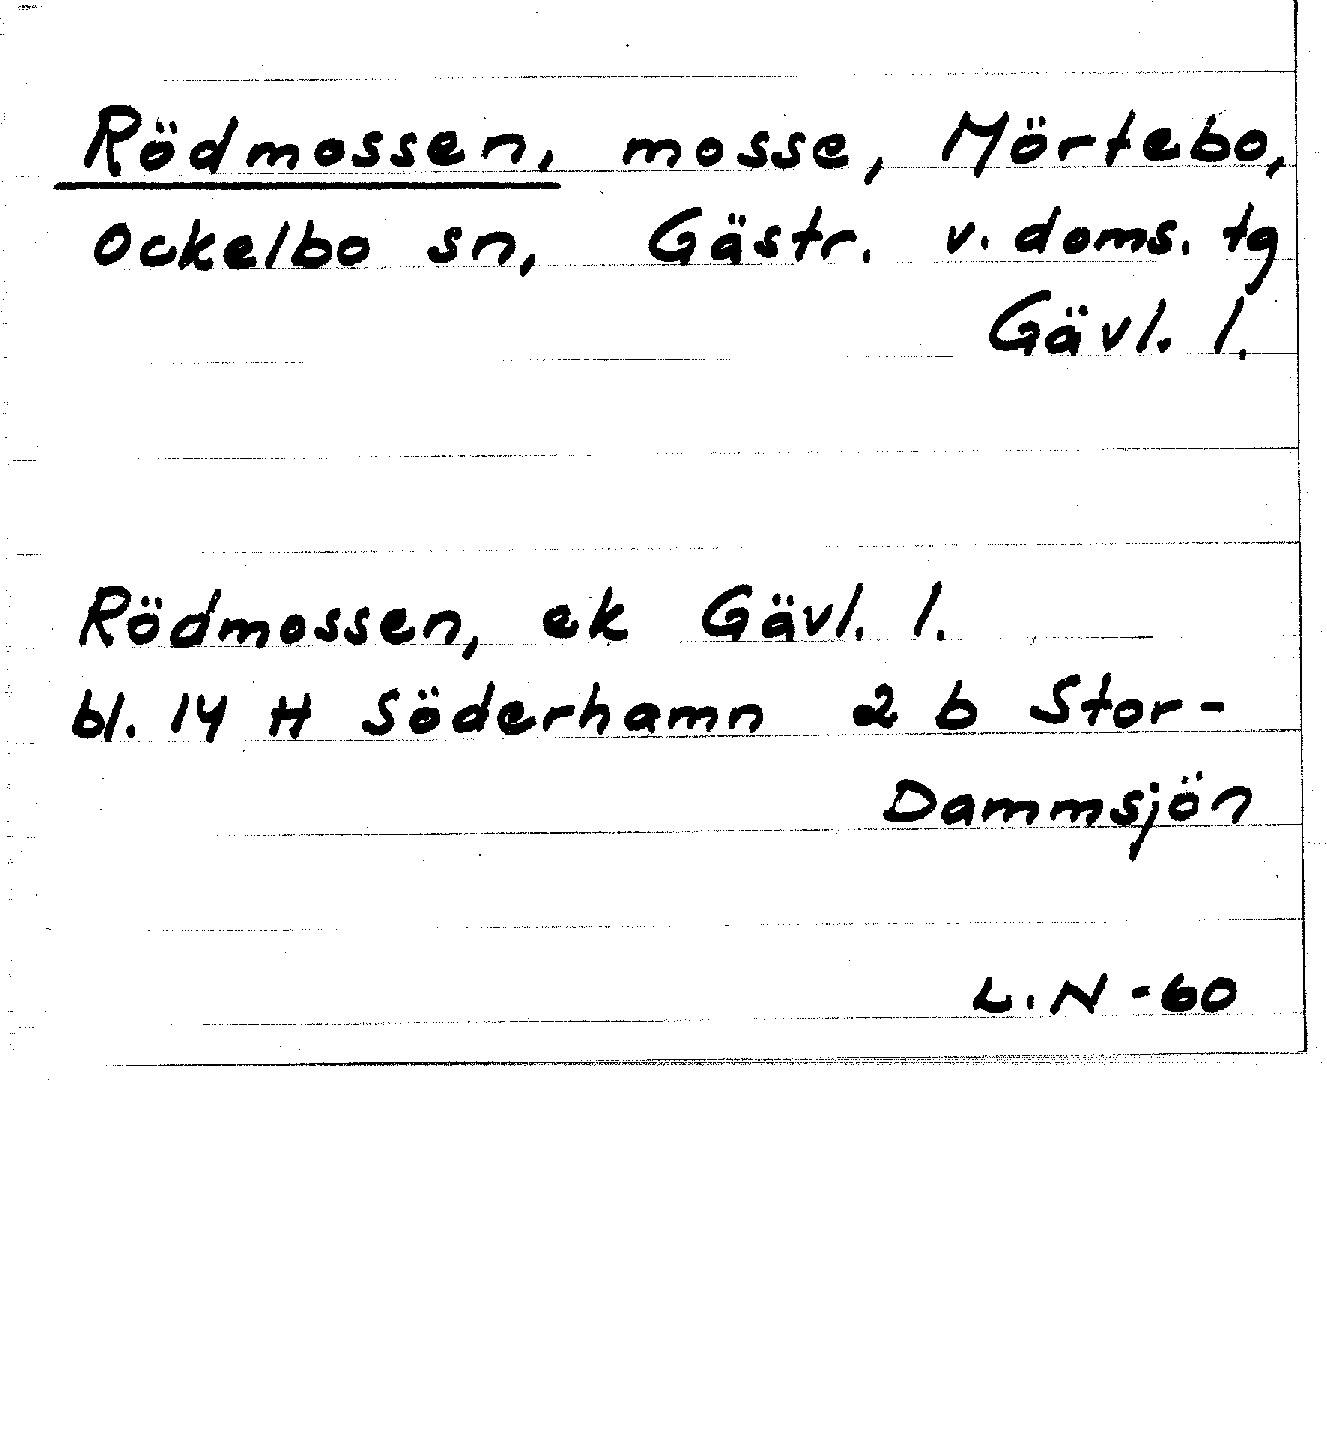 Rödmossen, mosse, Mörtebo,
Ockelbo sn, Gästr. v. doms. tg
Gävl. l.
Rödmossen, ek Gävl. l.
bl. 14 H Söderhamn 2 b Stor-
Dammsjön
L. N -60